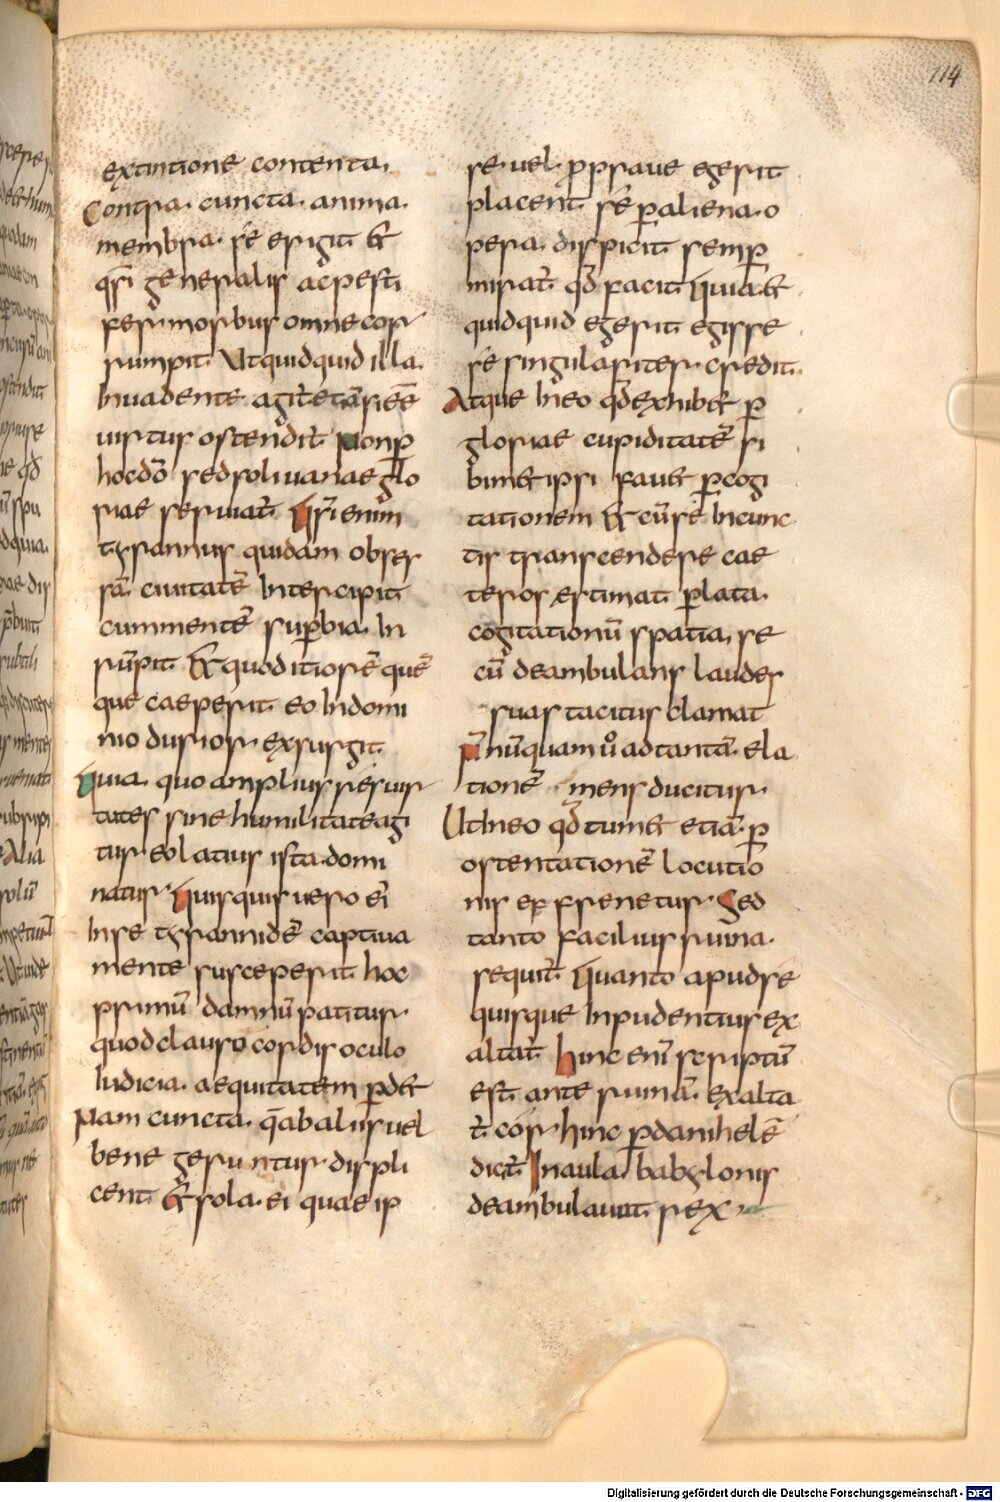 114
extintione contenta.
Contra. cuncta. anima.
membra. se erigit &
qsi generalis ac pesti
fer. morbus omne cor
rumpit. Ut quidquid illa.
Invadente agit̄. etā si eē
virtus ostendit̄. Non p̄
hoc dō sed soli vanae glo
riae serviat̄. Qsi enim
tyrannus quidam obses
sā. civitatē Intercipit
cum mentē sup̄bia. In
rūpit. Et quo ditiorē quē
que caeperit. eo In domi
nio durior. exsurgit.
Quia. quo amplius si es vir
tutes sine humilitate agi
tur. eo latius ista. domi
natur. Quisquis vero ei
In se tyrannidē captiva
mente susceperit. hoc
primū damnū patitur.
quod clauso cordis oculo
Iudicia. aequitatem p̄d&
Nam cuncta. q̄ ab aliis vel
bene geruntur. displi
cent. & sola. ei quae ip
se. vel. p̄prave egerit
placent. sē p̄ aliena. o
pera. dispicit semp̄
mirat̄. qđ facit. Quia. &
quidquid egerit egisse
se singulariter. credit.
Atque In eo qđ exhib& p̄
gloriae cupiditatē si
bim& ipsi fav& p̄ cogi
tationem Et cū se In cunc
tis transcendere cae
teros estimat. p̄ lata.
cogitationū spatia. se
cū deambulans laudes
suas tacitus clamat
nūquam ů ad tantā. ela
tionē mens ducitur.
Ut In eo qđ tum& etiā. p̄
ostentationē locutio
nis Sed
tanto facilius ruina.
sequit̄. Quanto apud se
quisque Inpudentius ex
altat̄. hinc enī scriptū
est. ante ruinā. exalta
t̄. cor. hinc p̄ danihelē
dicit̄. In aula. babylonis
deambulavit. rex
Digitalisierung gefördert durch die Deutsche Forschungsgemeinschaft - DFG